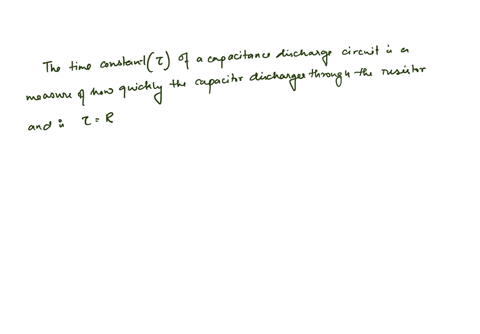 The time constant (τ) of a capacitance discharge circuit is a
measure of how quickly the capacitor discharges through the resistor
and is τ = R